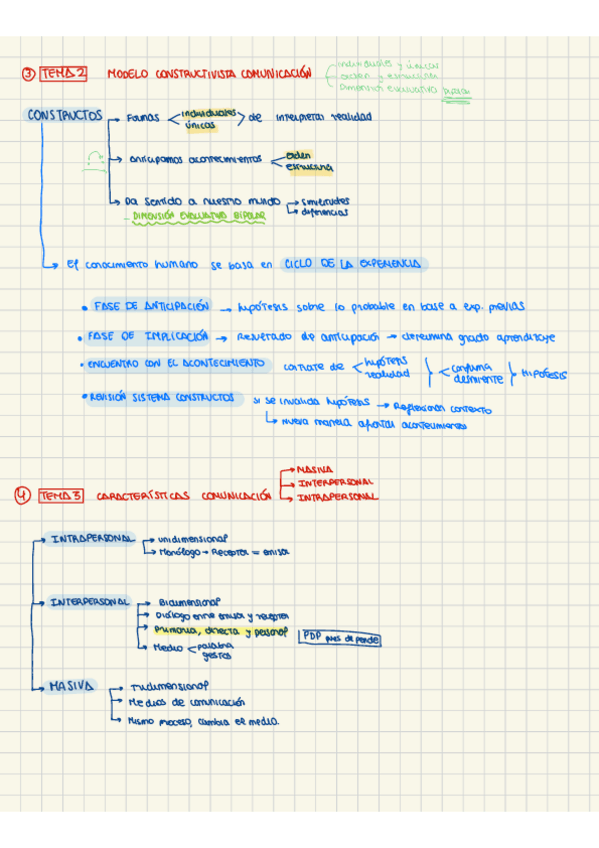 ③ TEMA 2 MODELO CONSTRUCTIVISTA COMUNICACIÓN
individuales y únicas
orden y estructura
Dimensión evaluativo bipolar
CONSTRUCTOS
Formas individuales únicas de interpretar realidad
anticipamos acontecimientos orden estructura
Da sentido a nuestro mundo similitudes diferencias
- DIMENSIÓN EVALUATIVO BIPOLAR
El conocimiento humano se basa en CICLO DE LA EXPERIENCIA
• FASE DE ANTICIPACIÓN → hipótesis sobre lo probable en base a exp. previas
• FASE DE IMPLICACIÓN → Resultado de anticipación → determina grado aprendizaje
• ENCUENTRO CON EL ACONTECIMIENTO contraste de hipótesis realidad confirma desmiente Hipótesis
• REVISIÓN SISTEMA CONSTRUCTOS si se invalida hipótesis → Reflexionar contexto
→ nueva manera afrontar acontecimientos
④ TEMA 3 CARACTERÍSTICAS COMUNICACIÓN
→ MASIVA
→ INTERPERSONAL
→ INTRAPERSONAL
INTRAPERSONAL
→ unidimensional
→ Monólogo → Receptor = emisor
INTERPERSONAL
→ Bidimensional
→ Diálogo entre emisor y receptor
→ Primaria, directa y personal PDP
→ Medio palabra gestos
MASIVA
→ Tridimensional
→ Medios de comunicación
→ Mismo proceso, cambia el medio.